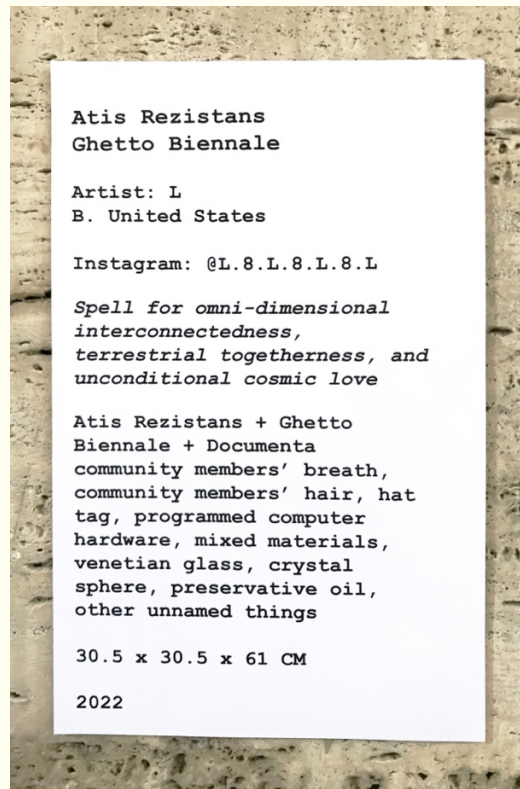 Atis Rezistans
Ghetto Biennale
Artist: L
B. United States
Instagram: @L.8.L.8.L.8.L
Spell for omni-dimensional
interconnectedness,
terrestrial togetherness, and
unconditional cosmic love
Atis Rezistans + Ghetto
Biennale + Documenta
community members’ breath,
community members’ hair, hat
tag, programmed computer
hardware, mixed materials,
venetian glass, crystal
sphere, preservative oil,
other unnamed things
30.5 x 30.5 x 61 CM
2022